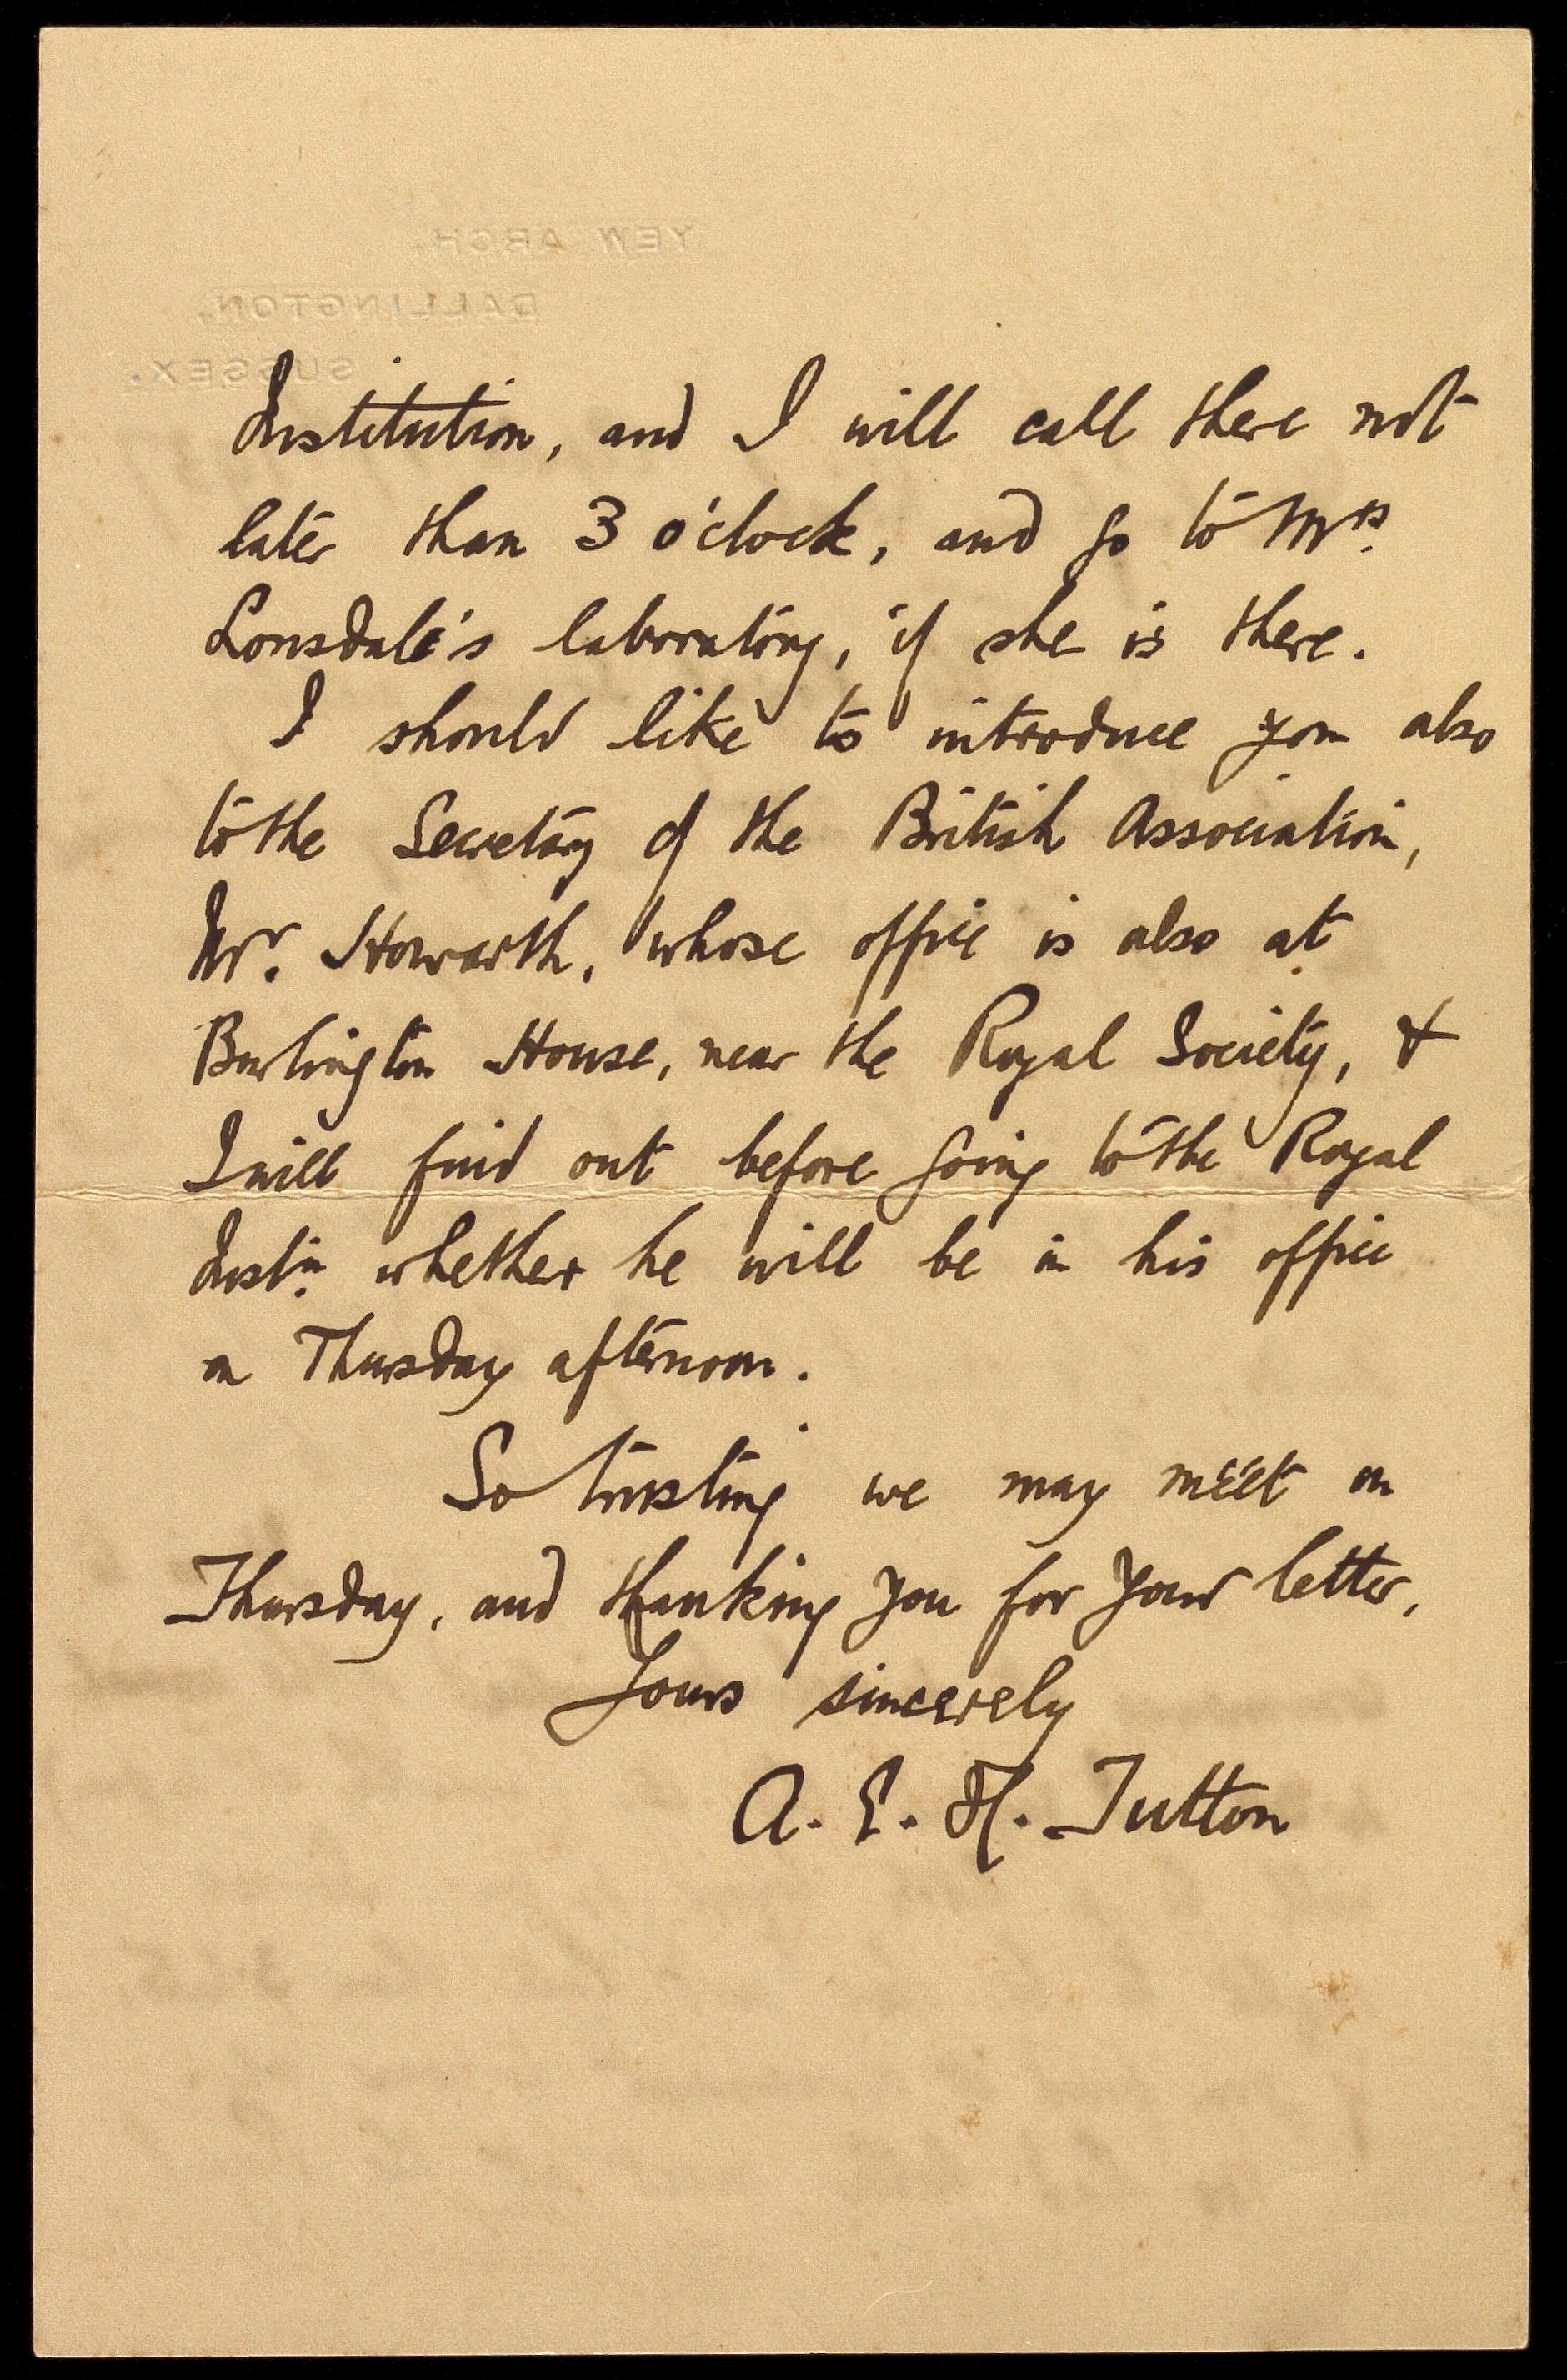 YEW ARCH,
DALLINGTON,
SUSSEX.
Institution, and I will call there not
later than 3 o'clock, and go to Mrs.
Lonsdale's laboratory, if she is there.
I should like to introduce you also
to the Secretary of the British Association,
Mr. Howarth, whose office is also at
Burlington House, near the Royal Society, &
I will find out before going to the Royal
Instn. whether he will be in his office
on Thursday afternoon.
So trusting we may meet on
Thursday, and thanking you for your letter,
Yours sincerely
A. E. H. Tutton